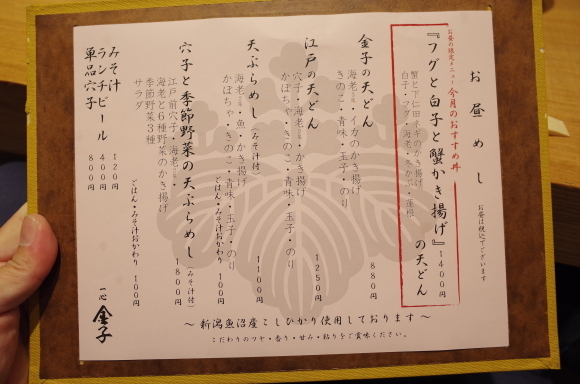 お昼めし
お昼は税込でございます
お昼の限定メニュー 今月のおすすめ丼
『フグと白子と蟹かき揚げ』の天どん
1400円
蟹と下仁田ネギのかき揚げ
白子・フグ・海老・冬かぶ・蓮根
金子の天どん 880円
海老・イカのかき揚げ
きのこ・青味・玉子・のり
江戸の天どん 1250円
穴子・海老・かき揚げ
かぼちゃ・きのこ・青味・玉子・のり
天ぷらめし(みそ汁付) 1100円
海老・魚・かき揚げ
かぼちゃ・きのこ・青味・玉子・のり
ごはん・みそ汁おかわり 100円
穴子と季節野菜の天ぷらめし(みそ汁付) 1800円
江戸前穴子・海老・
海老と6種野菜のかき揚げ
季節野菜3種
サラダ
ごはん・みそ汁おかわり 100円
みそ汁 120円
ランチビール 400円
単品穴子 800円
一心 金子
～新潟魚沼産こしひかり使用しております～
こだわりのツヤ・香り・甘み・粘りをご賞味ください。